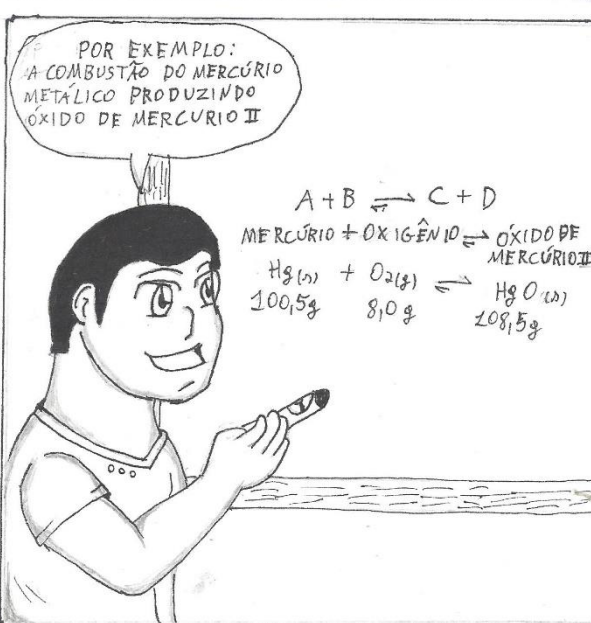 POR EXEMPLO:
A COMBUSTÃO DO MERCÚRIO
METÁLICO PRODUZINDO
ÓXIDO DE MERCURIO II
A + B ⇌ C + D
MERCÚRIO + OXIGÊNIO ⇌ ÓXIDO DE
MERCÚRIO II
Hg(s) + O2(g) ⇌ HgO(s)
100,5g 8,0g 108,5g